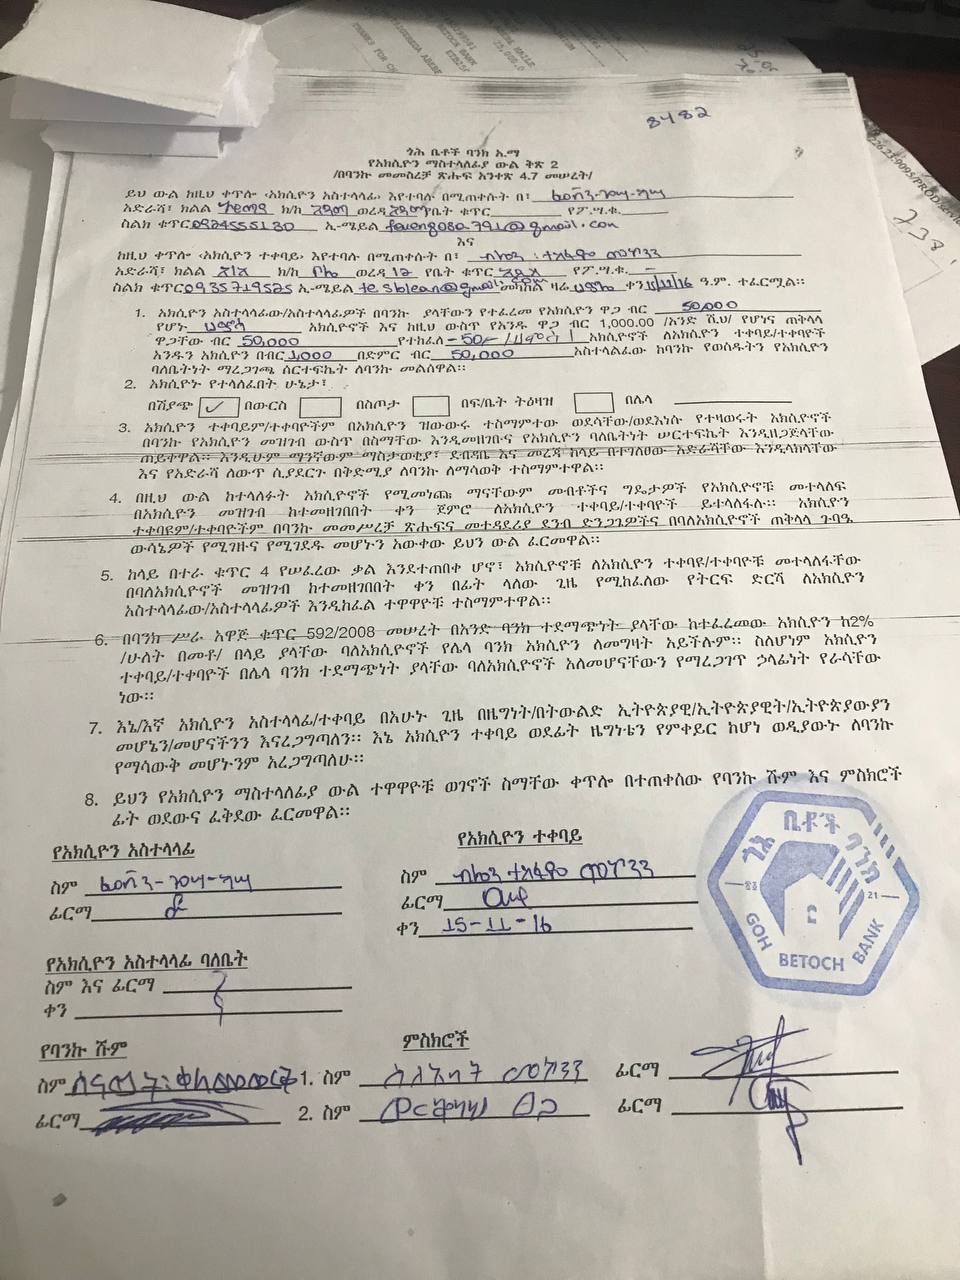 8482
ጎሕ ቤቶች ባንክ አ.ማ
የአክሲዮን ማስተላለፊያ ውል ቅጽ 2
/በባንኩ መመስረቻ ጽሑፍ አንቀጽ 4.7 መሠረት/
ይህ ውል ከዚህ ቀጥሎ ‹አክሲዮን አስተላላፊ› እየተባለ በሚጠቀሱት በ፣
አድራሻ፣ ክልል ክ/ከ አዳማ ወረዳ አዳማ የቤት ቁጥር የፖ.ሣ.ቁ.
ስልክ ቁጥር 0924555130 ኢ-ሜይል @gmail.com
እና
ከዚህ ቀጥሎ ‹አክሲዮን ተቀባይ› እየተባሉ በሚጠቀሱት በ፣ ብሌን ተስፋዬ መኮንን
አድራሻ፣ ክልል አ/አ ክ/ከ ቦሌ ወረዳ 12 የቤት ቁጥር አዲስ የፖ.ሣ.ቁ. –
ስልክ ቁጥር 0935719525 ኢ-ሜይል tesblean@gmail. መካከል ዛሬ ሀምሌ ቀን 15/11/16 ዓ.ም. ተፈርሟል።
1. አክሲዮን አስተላላፊው/አስተላላፊዎች በባንኩ ያላቸውን የተፈረመ የአክሲዮን ዋጋ ብር 50,000
የሆኑ ሀምሳ አክሲዮኖች እና ከዚህ ውስጥ የአንዱ ዋጋ ብር 1,000.00 /አንድ ሺህ/ የሆነና ጠቅላላ
ዋጋቸው ብር 50,000 የተከፈለ 50 /ሀምሳ/ አክሲዮኖች ለአክሲዮን ተቀባይ/ተቀባዮች
አንዱን አክሲዮን በብር 1,000 በድምር ብር 50,000 አስተላልፈው ከባንኩ የወሰዱትን የአክሲዮን
ባለቤትነት ማረጋገጫ ሰርተፍኬት ለባንኩ መልሰዋል።
2. አክሲዮኑ የተላለፈበት ሁኔታ፣
በሽያጭ ✓ በውርስ በስጦታ በፍ/ቤት ትዕዛዝ በሌላ
3. አክሲዮን ተቀባይም/ተቀባዮችም በአክሲዮን ዝውውሩ ተስማምተው ወደሳቸው/ወደእነሱ የተዛወሩት አክሲዮኖች
በባንኩ የአክሲዮን መዝገብ ውስጥ በስማቸው እንዲመዘገብና የአክሲዮን ባለቤትነት ሠርተፍኬት እንዲዘጋጅላቸው
ጠይተዋል። እንዲሁም ማንኛውም ማስታወቂያ፣ ደብዳቤ እና መረጃ ከላይ በተገለፀው አድራሻቸው እንዲላክላቸው
እና የአድራሻ ለውጥ ሲያደርጉ በቅድሚያ ለባንኩ ለማሳወቅ ተስማምተዋል።
4. በዚህ ውል ከተላለፉት አክሲዮኖች የሚመነጩ ማናቸውም መብቶችና ግዴታዎች የአክሲዮኖቹ መተላለፍ
በአክሲዮን መዝገብ ከተመዘገበበት ቀን ጀምሮ ለአክሲዮን ተቀባይ/ተቀባዮች ይተላለፋሉ። አክሲዮን
ተቀባዩም/ተቀባዮችም በባንኩ መመሥረቻ ጽሑፍና መተዳደሪያ ደንብ ድንጋጌዎችና በባለአክሲዮኖች ጠቅላላ ጉባዔ
ውሳኔዎች የሚገዙና የሚገደዱ መሆኑን አውቀው ይህን ውል ፈርመዋል።
5. ከላይ በተራ ቁጥር 4 የሠፈረው ቃል እንደተጠበቀ ሆኖ፣ አክሲዮኖቹ ለአክሲዮን ተቀባዩ/ተቀባዮቹ መተላለፋቸው
በባለአክሲዮኖች መዝገብ ከተመዘገበበት ቀን በፊት ላለው ጊዜ የሚከፈለው የትርፍ ድርሻ ለአክሲዮን
አስተላላፊው/አስተላላፊዎች እንዲከፈል ተዋዋዮቹ ተስማምተዋል።
6. በባንክ ሥራ አዋጅ ቁጥር 592/2008 መሠረት በአንድ ባንክ ተደማጭነት ያላቸው ከተፈረመው አክሲዮን ከ2%
/ሁለት በመቶ/ በላይ ያላቸው ባለአክሲዮኖች የሌላ ባንክ አክሲዮን ለመግዛት አይችሉም። ስለሆነም አክሲዮን
ተቀባይ/ተቀባዮች በሌላ ባንክ ተደማጭነት ያላቸው ባለአክሲዮኖች አለመሆናቸውን የማረጋገጥ ኃላፊነት የራሳቸው
ነው።
7. እኔ/እኛ አክሲዮን አስተላላፊ/ተቀባይ በአሁኑ ጊዜ በዜግነት/በትውልድ ኢትዮጵያዊ/ኢትዮጵያዊት/ኢትዮጵያውያን
መሆኔን/መሆናችንን እናረጋግጣለን። እኔ አክሲዮን ተቀባይ ወደፊት ዜግነቴን የምቀይር ከሆነ ወዲያውኑ ለባንኩ
የማሳውቅ መሆኑንም አረጋግጣለሁ።
8. ይህን የአክሲዮን ማስተላለፊያ ውል ተዋዋዮቹ ወገኖች ስማቸው ቀጥሎ በተጠቀሰው የባንኩ ሹም እና ምስክሮች
ፊት ወደውና ፈቅደው ፈርመዋል።
የአክሲዮን አስተላላፊ
የአክሲዮን ተቀባይ
ስም
ስም ብሌን ተስፋዬ መኮንን
ፊርማ
ፊርማ
ቀን 15-11-16
ጎሕ ቤቶች ባንክ
GOH BETOCH BANK
የአክሲዮን አስተላላፊ ባለቤት
ስም እና ፊርማ
ቀን
የባንኩ ሹም
ምስክሮች
ስም
1. ስም መኮንን ፊርማ
ፊርማ
2. ስም ፊርማ